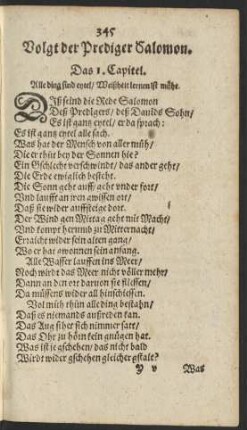 345
Volgt der Prediger Salomon.
Das 1. Capitel.
Alle ding sind eytel / Weißheit lernen ist mühe.
Diß seind die Rede Salomon
Deß Predigers / deß Dauids Sohn /
Es ist gantz eytel / er da sprach:
Es ist gantz eytel alle sach.
Was hat der Mensch von aller müh /
Die er thůt bey der Sonnen hie?
Ein Gschlecht verschwindt / das ander geht /
Die Erde ewiglich besteht.
Die Sonn geht auff / geht vnder fort /
Vnd laufft an jren gwissen ort /
Daß sie wider auffsteige dort.
Der Wind gen Mittag geht mit Macht /
Vnd kompt herumb zu Mitternacht /
Erraicht wider sein alten gang /
Wo er hat gwonnen sein anfang.
Alle Wasser lauffen ins Meer /
Noch wirdt das Meer nicht völler mehr /
Dann an den ort daruon sie fliessen /
Da müssens wider all hinschiessen.
Vol müh thun alle ding bestahn /
Daß es niemands außreden kan.
Das Aug sihet sich nimmer satt /
Das Ohr zu hörn kein gnügen hat.
Was ist je gschehen / das nicht bald
Wirdt wider gschehen gleicher gstalt?
Y v Was